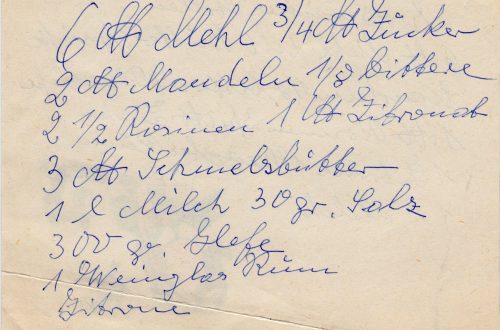 6 ℔ Mehl 3/4 ℔ Zucker
2 ℔ Mandeln 1/3 bittere
2 1/2 Rosinen 1 ℔ Zitronat
3 ℔ Schmelzbutter
1 l Milch 30 gr. Salz
300 gr. Hefe
1 Weinglas Rum
Zitrone